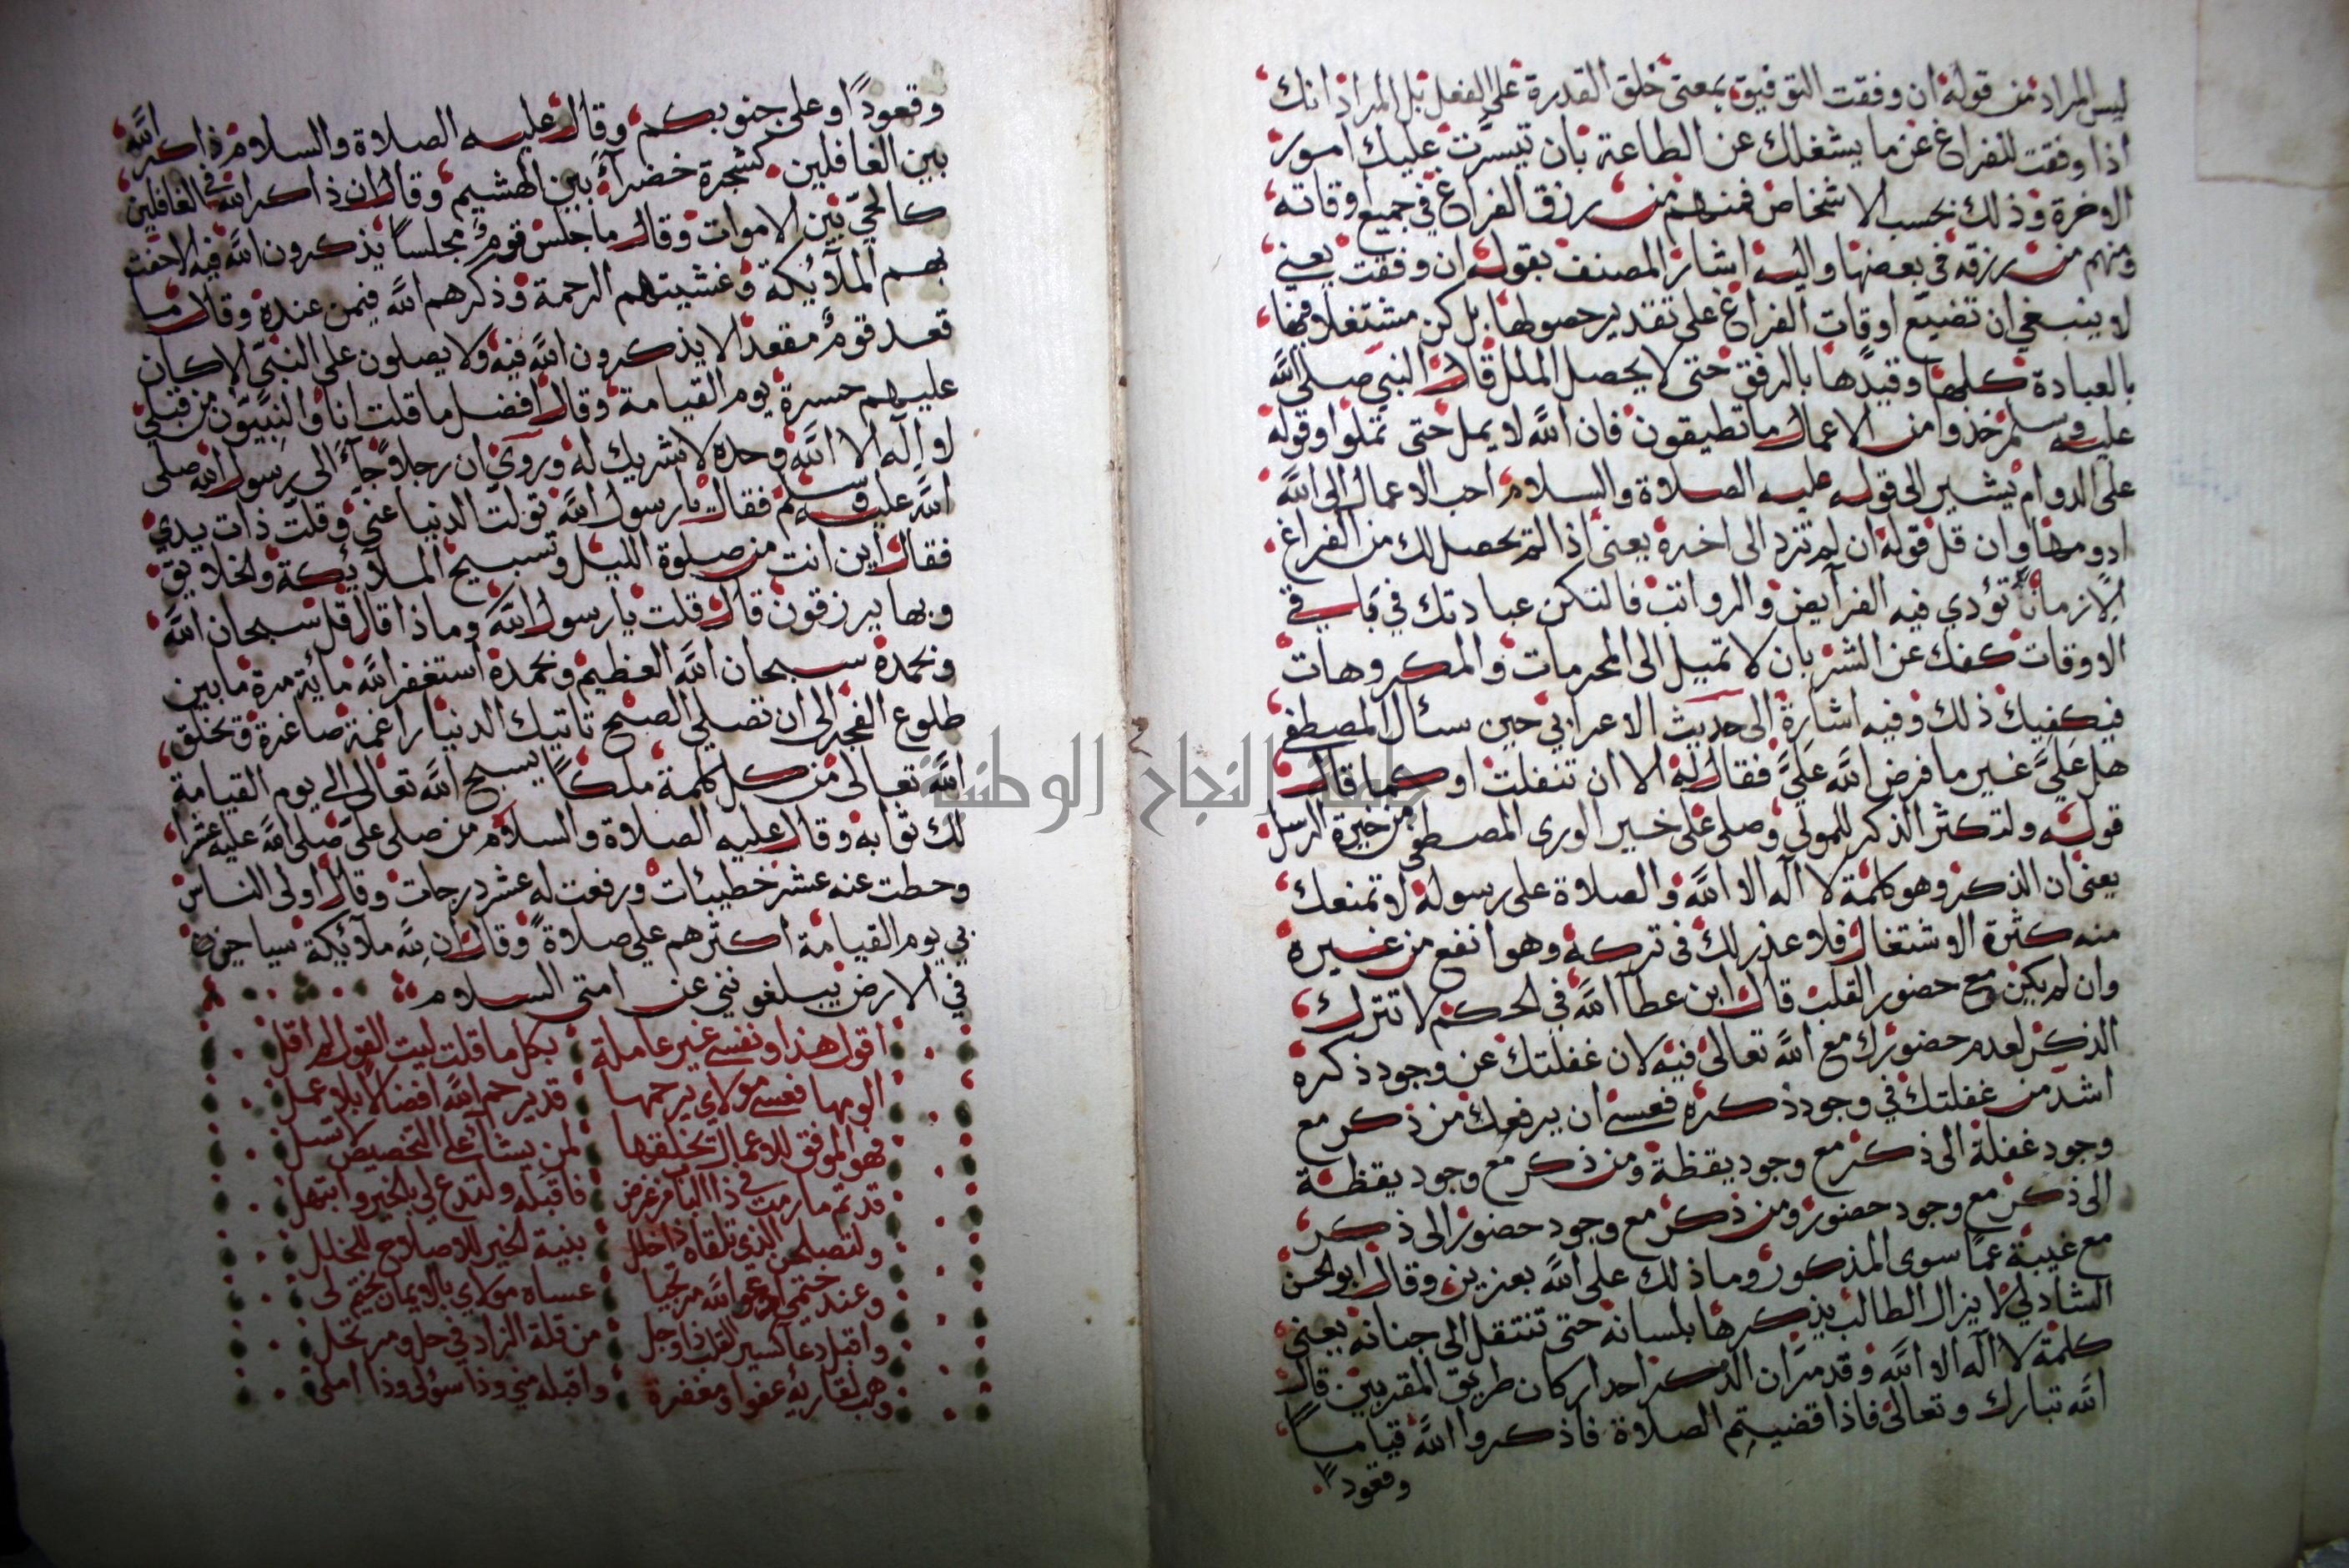 ليس المراد من قوله ان وفقت التوفيق بمعنى خلق القدرة على الفعل بل المراد انك
اذا وفقت للفراغ عن ما يشغلك عن الطاعة بان تيسرت عليك امور
الاخرة وذلك بحسب الاشخاص فمنهم من رزق الفراغ في جميع اوقاته
ومنهم من رزقه في بعضها واليه اشار المصنف بقوله ان وفقت يعني
لا ينبغي ان تضيع اوقات الفراغ على تقدير حصولها بل كن مشتغلا فيها
بالعبادة كلها وقيدها بالرفق حتى لا يحصل الملل قال النبي صلى الله
عليه وسلم خذوا من الاعمال ما تطيقون فان الله لا يمل حتى تملوا وقوله
على الدوام يشير الى قوله عليه الصلاة والسلام احب الاعمال الى الله
ادومها وان قل قوله ان لم تزد الى اخره يعني اذا لم تحصل لك من الفراغ
الا زمانا تؤدي فيه الفرآيض والرواتب فالتكن عبادتك في باقي
الاوقات كفك عن الشر بان لا تميل الى المحرمات والمكروهات
فيكفيك ذلك وفيه اشارة الى حديث الاعرابي حين سئال المصطفى
هل عليَّ غير ما فرض الله عليَّ فقال له الا ان تنفلت او كما قال
قوله ولتكثر الذكر للمولى وصلى على خير الورى المصطفى من خيرة الرسل
يعني ان الذكر وهو كلمة لا اله الا الله والصلاة على رسوله لا تمنعك
منه كثرة الاشتغال فلا عذر لك في تركه وهو انفع من غيره
وان لم يكن مع حضور القلب قال ابن عطآ الله في الحكم لا تترك
الذكر لعدم حضورك مع الله تعالى فيه لان غفلتك عن وجود ذكره
اشد من غفلتك في وجود ذكره فعسى ان يرفعك من ذكر مع
وجود غفلة الى ذكر مع وجود يقظة ومن ذكر مع وجود يقظة
الى ذكر مع وجود حضور ومن ذكر مع وجود حضور الى ذكر
مع غيبة عما سوى المذكور وما ذلك على الله بعزيز وقال ابو الحسن
الشادلي لا يزال الطالب يذكرها بلسانه حتى تنتقل الى جنانه يعني
كلمة لا اله الا الله وقد مر ان الذكر احد اركان طريق المقربين قال
الله تبارك وتعالى فاذا قضيتم الصلاة فاذكروا الله قياما
وقعودا
وقعودًا وعلى جنوبكم وقال عليه الصلاة والسلام ذاكر الله
بين الغافلين كشجرة خضرآء بين الهشيم وقال ان ذاكر الله في الغافلين
كالحيّ بين الاموات وقال ما جلس قوم مجلسا يذكرون الله فيه الا حفت
بهم الملآئكة وغشيتهم الرحمة وذكرهم الله فيمن عنده وقال ما
قعد قوم مقعدا لا يذكرون الله فيه ولا يصلون على النبي الا كان
عليهم حسرة يوم القيامة وقال افضل ما قلت انا والنبيون من قبلي
لا اله الا الله وحده لا شريك له وروي ان رجلا جآء الى رسول الله صلى
الله عليه وسلم فقال يا رسول الله تولت الدنيا عني وقلت ذات يدي
فقال اين انت من صلوة الليل وتسبيح الملآئكة والخلايق
وبها يرزقون قال قلت يا رسول الله وماذا قال قل سبحان الله
وبحمده سبحان الله العظيم وبحمده استغفر الله مائية مرة ما بين
طلوع الفجر الى ان تصلي الصبح تاتيك الدنيا راغمة صاغرة وتخلق
الله تعالى من كل كلمة ملكًا يسبح الله تعالى الى يوم القيامة
لك ثوابه وقال عليه الصلاة والسلام من صلى عليّ صلى الله عليه عشرا
وحطت عنه عشر خطيئات ورفعت له عشر درجات وقال اولى الناس
بي يوم القيامة اكثرهم علي صلاةً وقال ان لله ملآئكة سياحين
في الارض يبلغونني عن امتي السلام
اقول هذا ونفسي غير عاملة بكل ما قلت ليت القول لم اقل
الومها فعسى مولاي يرحمها قد يرحم الله افضالا بلا عمل
فهو الموفق للاعمال تخلقها لمن يشآء على التخصيص لا تسل
قد تم ما رمت في ذا الباب من غرض فاقبله ولتدع لي بالخير وابتهل
ولتصلحن الذي تلقاه ذا خلل بنية الخير للاصلاح للخلل
وعند ختمي ادعو الله مرتجيا عساه مولاي بالايمان يختم لي
واقبل دعآء كسير القلب ذا وجل من قلة الزاد في حل ومرتحل
وهب لقاريه عفوا ومغفرة واقبله مني وذا سؤلي وذا املي
جامعة النجاح الوطنية